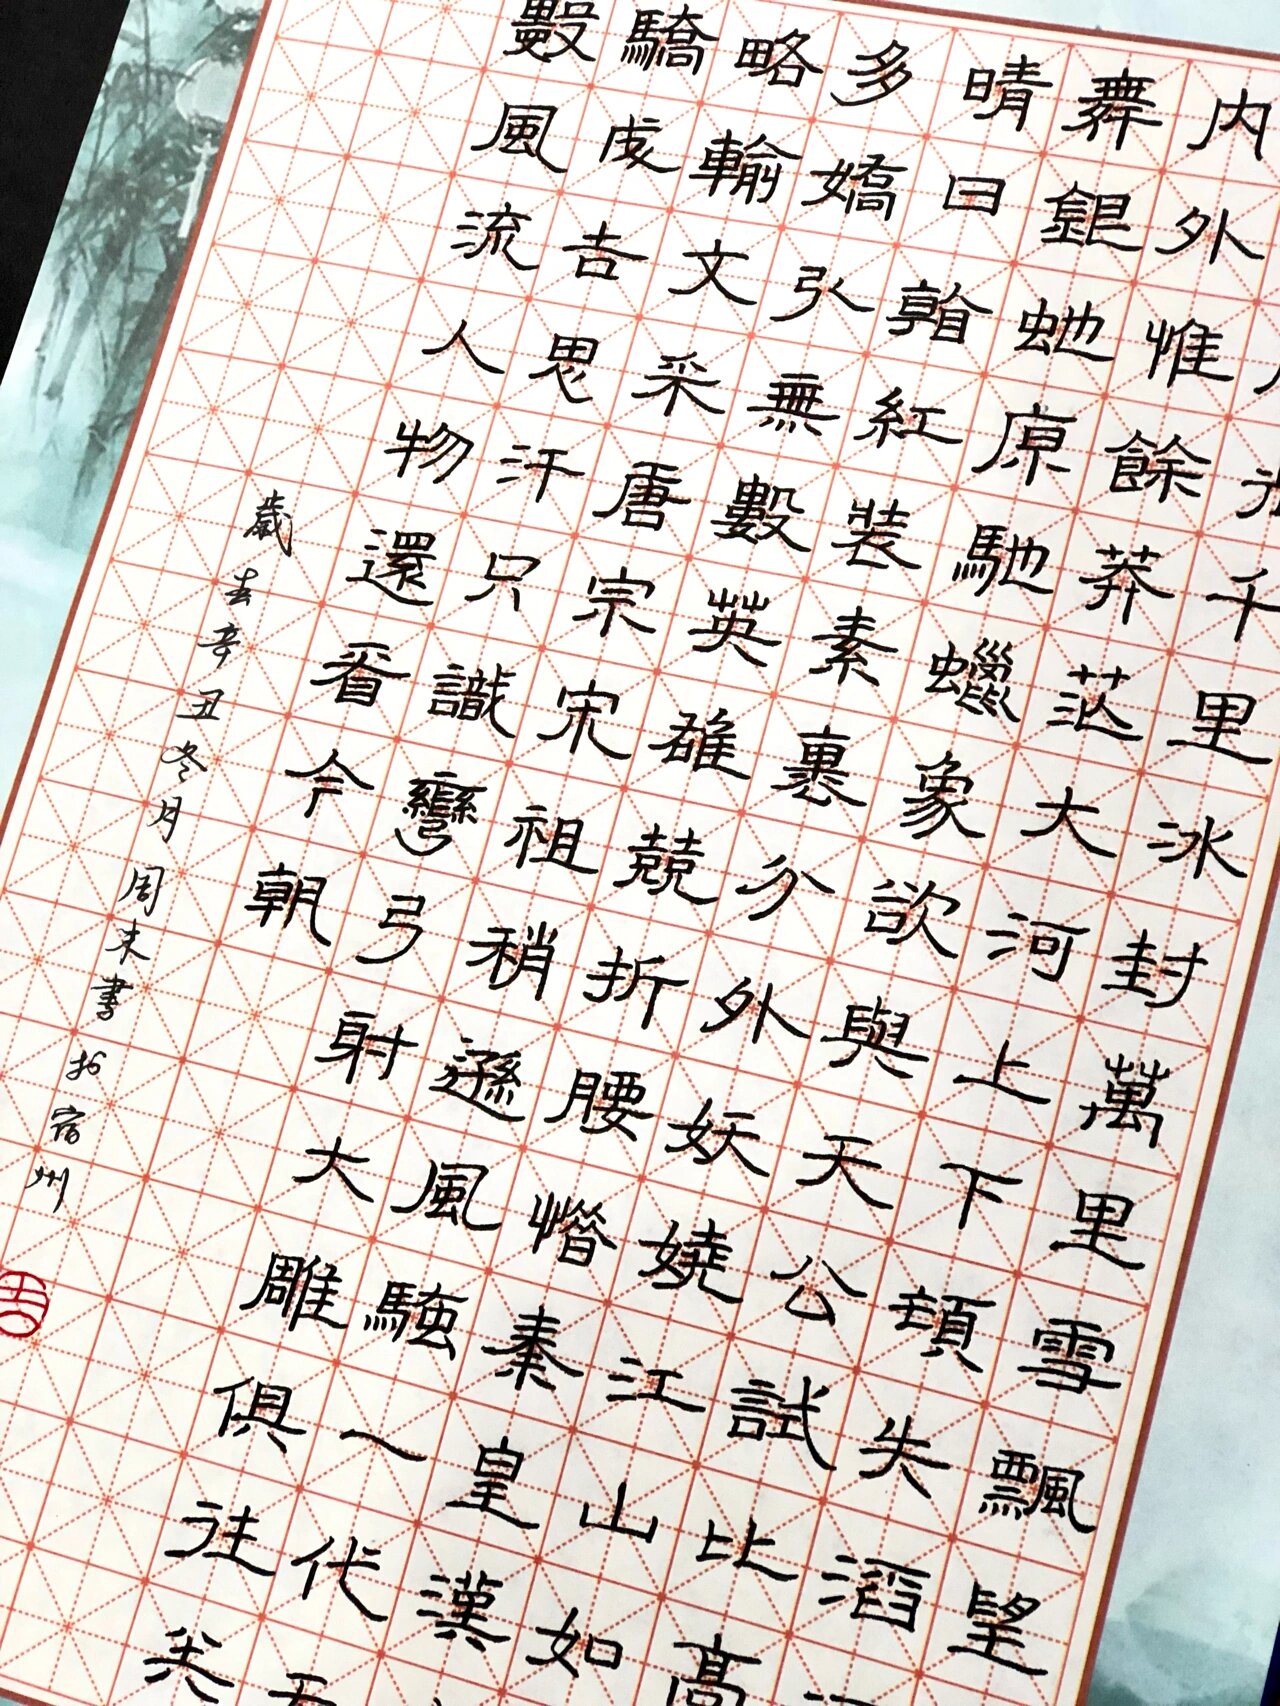 千里冰封萬里雪飄望
内外惟餘莽茫大河上下頓失滔
舞銀蛇原馳蠟象欲與天公試比高
晴日看紅裝素裹分外妖嬈江山如
多嬌引無數英雄競折腰惜秦皇漢
略輸文采唐宗宋祖稍遜風騷一代天
驕成吉思汗只識彎弓射大雕俱往矣
數風流人物還看今朝
歲在辛丑冬月周末書於宿州